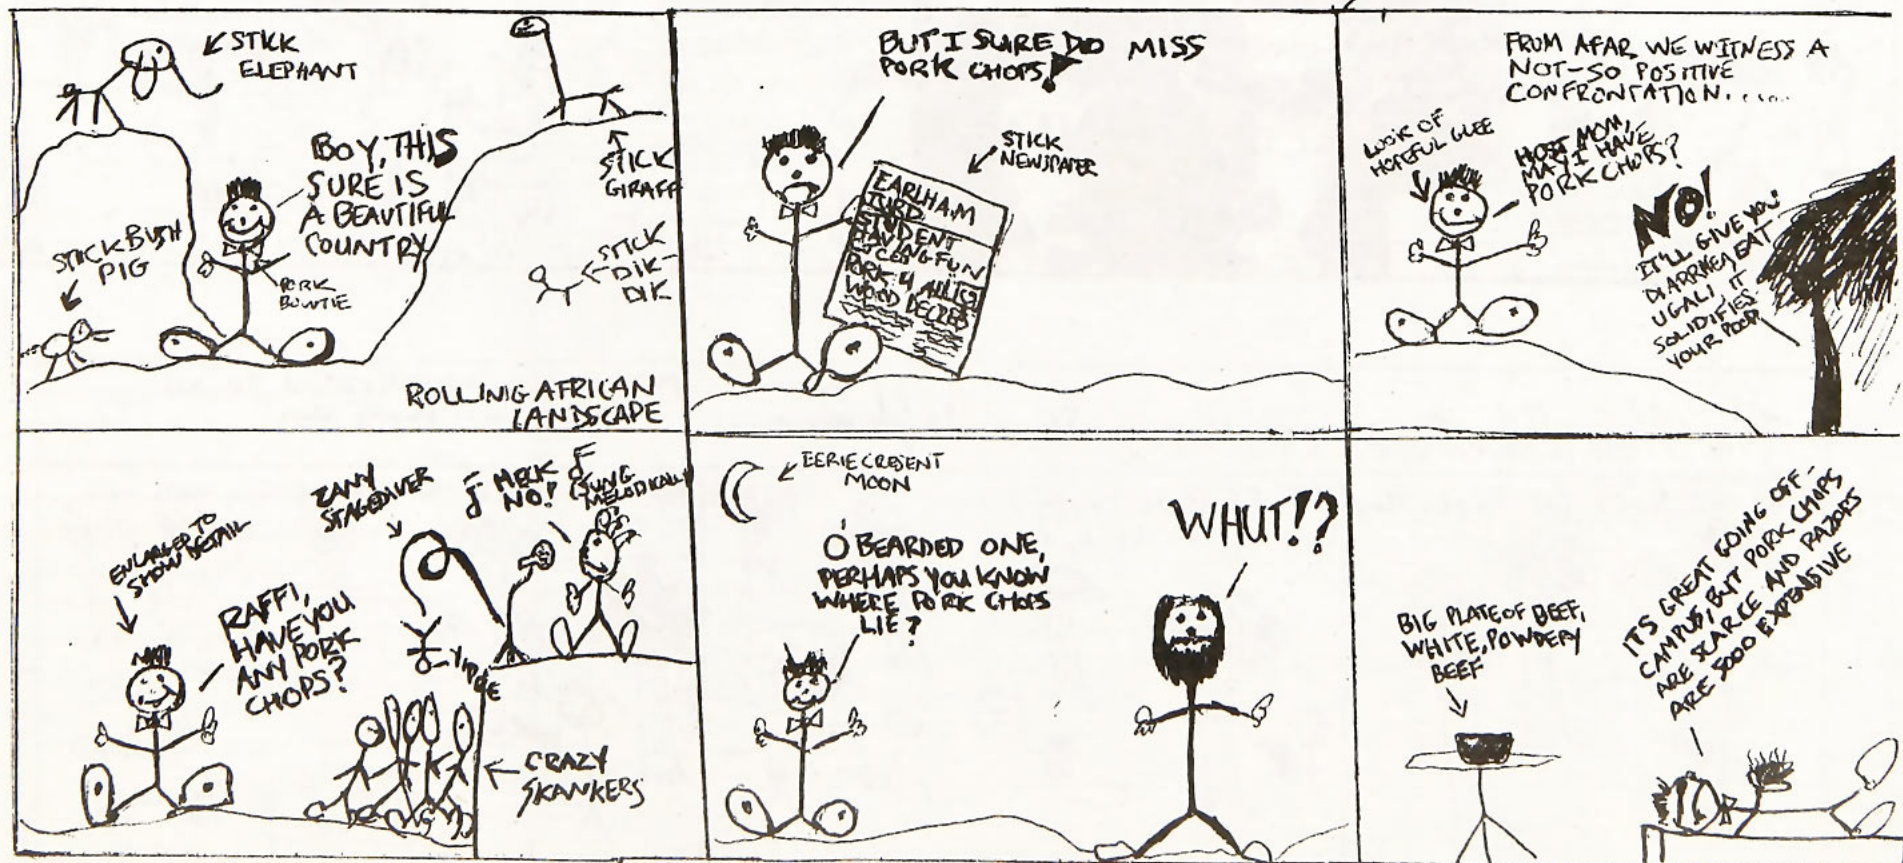 STICK
ELEPHANT
BOY, THIS
SURE IS
A BEAUTIFUL
COUNTRY
STICK
GIRAFF
STICK BUSH
PIG
PORK
BOWTIE
STICK
DIK-
DIK
ROLLING AFRICAN
LANDSCAPE
BUT I SURE DO MISS
PORK CHOPS!
STICK
NEWSPAPER
EARLHAM
TURD
STUDENT
HAVING FUN
PORK
WOOD
FROM AFAR WE WITNESS A
NOT-SO POSITIVE
CONFRONTATION.....
LOOK OF
HOPEFUL GLEE
HOST MOM,
MAY I HAVE
PORK CHOPS?
NO!
IT'LL GIVE YOU
DIARRHEA, EAT
UGALI, IT
SOLIDIFIES
YOUR POOP
ENLARGED TO
SHOW DETAIL
RAFFI,
HAVE YOU
ANY PORK
CHOPS?
ZANY
STAGEDIVER
HECK
NO!
(SUNG
MELODICALLY
YIPPEE
CRAZY
SKANKERS
EERIE CRESENT
MOON
O BEARDED ONE,
PERHAPS YOU KNOW
WHERE PORK CHOPS
LIE?
WHUT!?
BIG PLATE OF BEEF,
WHITE, POWDERY
BEEF
ITS GREAT GOING OFF-
CAMPUS, BUT PORK CHOPS
ARE SCARCE AND RAZORS
ARE SOOO EXPENSIVE